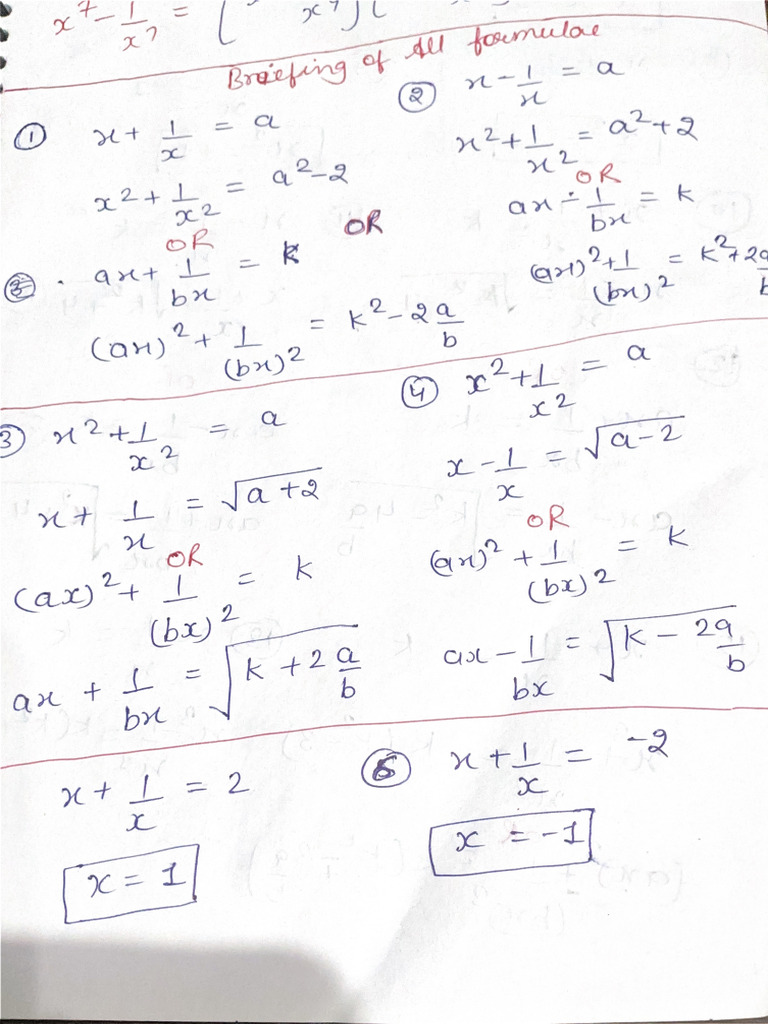 x⁷ - 1/x⁷ = [ x⁷ ] [
Briefing of All formulae
① x + 1/x = a
x² + 1/x² = a² - 2
OR
ax + 1/bx = k
(ax)² + 1/(bx)² = k² - 2a/b
OR
② x - 1/x = a
x² + 1/x² = a² + 2
OR
ax - 1/bx = k
(ax)² + 1/(bx)² = k² + 2a/b
3 x² + 1/x² = a
x + 1/x = √(a + 2)
OR
(ax)² + 1/(bx)² = k
ax + 1/bx = √(k + 2a/b)
④ x² + 1/x² = a
x - 1/x = √(a - 2)
OR
(ax)² + 1/(bx)² = k
ax - 1/bx = √(k - 2a/b)
x + 1/x = 2
x = 1
⑥ x + 1/x = -2
x = -1